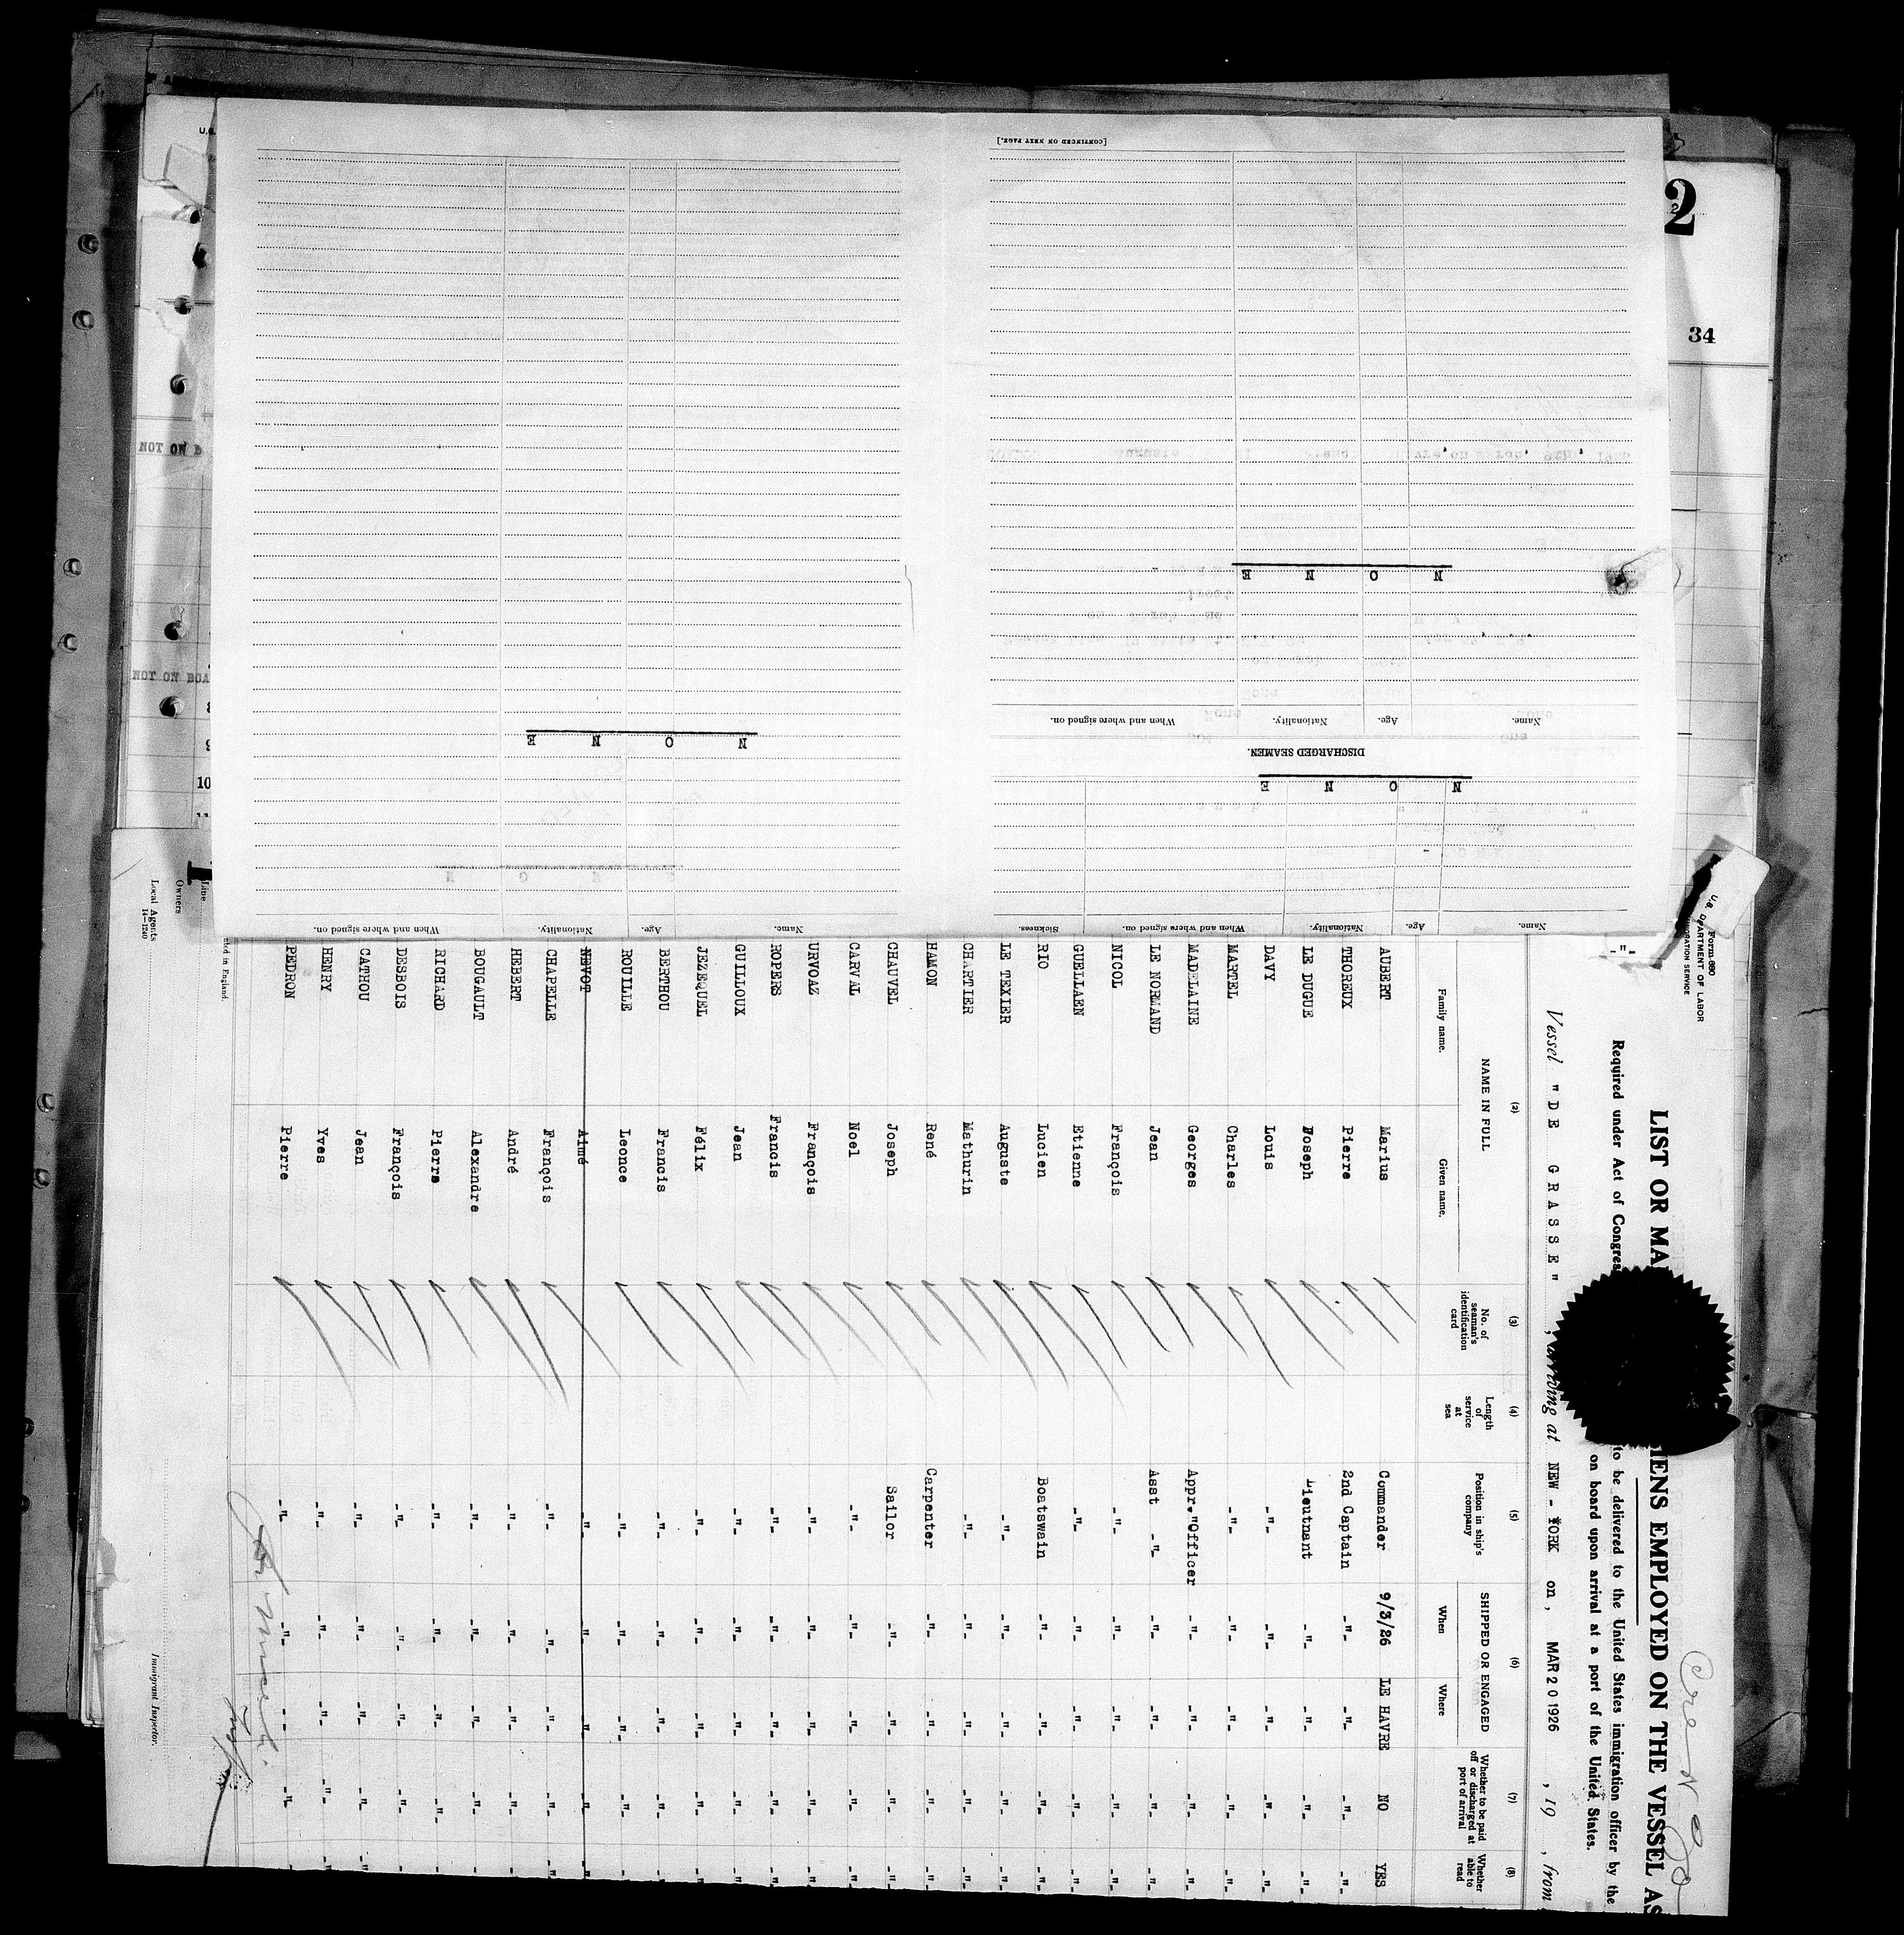 2
34
NOT ON
NOT ON BOA
10
[CONTINUED ON NEXT PAGE.]
N O N E
Name. Age. Nationality. When and where signed on.
DISCHARGED SEAMEN.
N O N E
Name. Age. Nationality. When and where signed on. Sickness.
N O N E
Name. Age. Nationality. When and where signed on.
Form 680
U.S. DEPARTMENT OF LABOR
IMMIGRATION SERVICE
LIST OR MA
IENS EMPLOYED ON THE VESSEL AS
Required under Act of Congres
to be delivered to the United States immigration officer by the
on board upon arrival at a port of the United States.
Vessel "DE GRASSE", arriving at NEW-YORK on, MAR 20 1926, 19 , from
(2) (3) (4) (5) (6) (7) (8)
NAME IN FULL
Family name. Given name.
No. of seaman's identification card
Length of service at sea
Position in ship's company
SHIPPED OR ENGAGED
When Where
Whether to be paid off or discharged at port of arrival
Whether able to read
AUBERT Marius Commander 9/3/26 LE HAVRE NO YES
THOREUX Pierre 2nd Captain -"- -"- -"- -"-
LE DUGUE Joseph Lieutnant -"- -"- -"- -"-
DAVY Louis -"- -"- -"- -"- -"-
MARTEL Charles -"- -"- -"- -"- -"-
MADELAINE Georges Appr."Officer -"- -"- -"- -"-
LE NORMAND Jean Asst -"- -"- -"- -"- -"-
NICOL François -"- -"- -"- -"- -"-
GUELLAEN Etienne -"- -"- -"- -"- -"-
RIO Lucien Boatswain -"- -"- -"- -"-
LE TEXIER Auguste -"- -"- -"- -"- -"-
CHARTIER Mathurin -"- -"- -"- -"- -"-
HAMON René Carpenter -"- -"- -"- -"-
CHAUVEL Joseph Sailor -"- -"- -"- -"-
CARVAL Noel -"- -"- -"- -"- -"-
URVOAZ François -"- -"- -"- -"- -"-
ROPERS Francis -"- -"- -"- -"- -"-
GUILLOUX Jean -"- -"- -"- -"- -"-
JEZEQUEL Félix -"- -"- -"- -"- -"-
BERTHOU Francis -"- -"- -"- -"- -"-
ROUILLE Leonce -"- -"- -"- -"- -"-
NEVOT Aimé -"- -"- -"- -"- -"-
CHAPELLE François -"- -"- -"- -"- -"-
HEBERT André -"- -"- -"- -"- -"-
BOUGAULT Alexandre -"- -"- -"- -"- -"-
RICHARD Pierre -"- -"- -"- -"- -"-
DESBOIS François -"- -"- -"- -"- -"-
CATHOU Jean -"- -"- -"- -"- -"-
HENRY Yves -"- -"- -"- -"- -"-
PEDRON Pierre -"- -"- -"- -"- -"-
Line
Owners
Local Agents
14-1240
Immigrant Inspector.
ted in England.